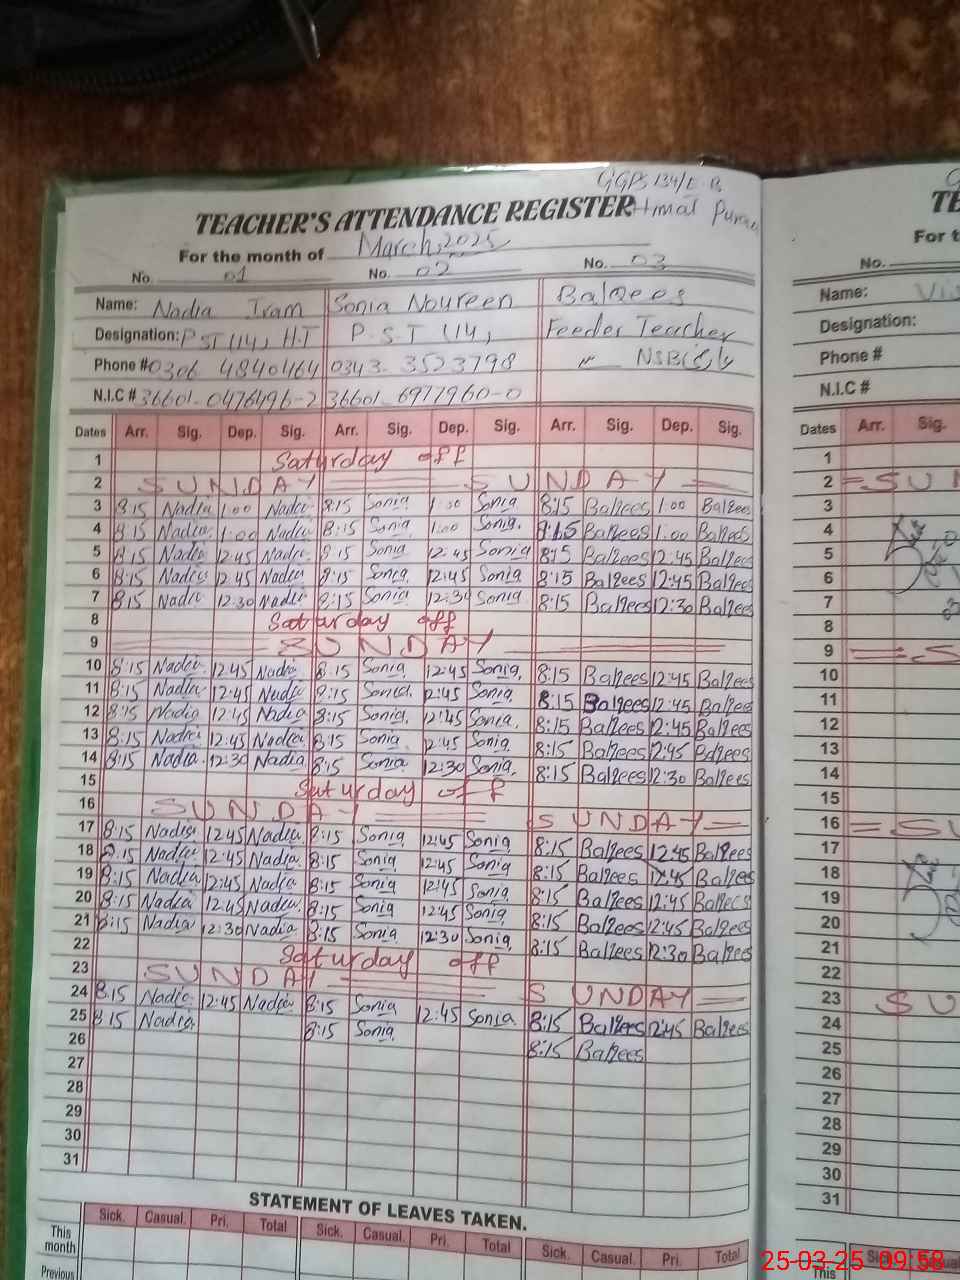 GGPS 134/E.B
TEACHER'S ATTENDANCE REGISTER
For the month of March, 2025
No. 01 No. 02 No. 03
Name: Nadia Iram Sonia Noureen Balqees
Designation: PST (14), H.T P.S.T (14) Feeder Teacher
Phone # 0306 4840464 0343-3523798
N.I.C # 36601-0476496-2 36601-6977960-0
Dates Arr. Sig. Dep. Sig. Arr. Sig. Dep. Sig. Arr. Sig. Dep. Sig.
1 Saturday off
2 SUNDAY SUNDAY
3 8:15 Nadia 1:00 Nadia 8:15 Sonia 1:00 Sonia 8:15 Balqees 1:00 Balqees
4 8:15 Nadia 1:00 Nadia 8:15 Sonia 1:00 Sonia. 8:15 Balqees 1:00 Balqees
5 8:15 Nadia 12:45 Nadia 8:15 Sonia 12:45 Sonia 8:15 Balqees 12:45 Balqees
6 8:15 Nadia 12:45 Nadia 8:15 Sonia 12:45 Sonia 8:15 Balqees 12:45 Balqees
7 8:15 Nadia 12:30 Nadia 8:15 Sonia 12:30 Sonia 8:15 Balqees 12:30 Balqees
8 Saturday off
9 SUNDAY
10 8:15 Nadia 12:45 Nadia 8:15 Sonia 12:45 Sonia. 8:15 Balqees 12:45 Balqees
11 8:15 Nadia 12:45 Nadia 8:15 Sonia. 12:45 Sonia 8:15 Balqees 12:45 Balqees
12 8:15 Nadia 12:45 Nadia 8:15 Sonia. 12:45 Sonia. 8:15 Balqees 12:45 Balqees
13 8:15 Nadia 12:45 Nadia 8:15 Sonia 12:45 Sonia 8:15 Balqees 12:45 Balqees
14 8:15 Nadia. 12:30 Nadia 8:15 Sonia 12:30 Sonia. 8:15 Balqees 12:30 Balqees
15 Saturday off
16 SUNDAY SUNDAY
17 8:15 Nadia 12:45 Nadia 8:15 Sonia 12:45 Sonia 8:15 Balqees 12:45 Balqees
18 8:15 Nadia 12:45 Nadia 8:15 Sonia 12:45 Sonia 8:15 Balqees 12:45 Balqees
19 8:15 Nadia 12:45 Nadia 8:15 Sonia 12:45 Sonia 8:15 Balqees 12:45 Balqees
20 8:15 Nadia 12:45 Nadia. 8:15 Sonia 12:45 Sonia 8:15 Balqees 12:45 Balqees
21 8:15 Nadia 12:30 Nadia 8:15 Sonia 12:30 Sonia 8:15 Balqees 12:30 Balqees
22 Saturday off
23 SUNDAY SUNDAY
24 8:15 Nadia 12:45 Nadia 8:15 Sonia 12:45 Sonia. 8:15 Balqees 12:45 Balqees
25 8:15 Nadia 8:15 Sonia 8:15 Balqees
26
27
28
29
30
31
STATEMENT OF LEAVES TAKEN.
Sick. Casual. Pri. Total Sick. Casual. Pri. Total Sick. Casual. Pri. Total
This month
Previous
TE
For t
No.
Name:
Designation:
Phone #
N.I.C #
Dates Arr. Sig.
1
2 SU
3
4
5
6
7
8
9 S
10
11
12
13
14
15
16 SU
17
18
19
20
21
22
23 SU
24
25
26
27
28
29
30
31
This
25-03-25 09:58